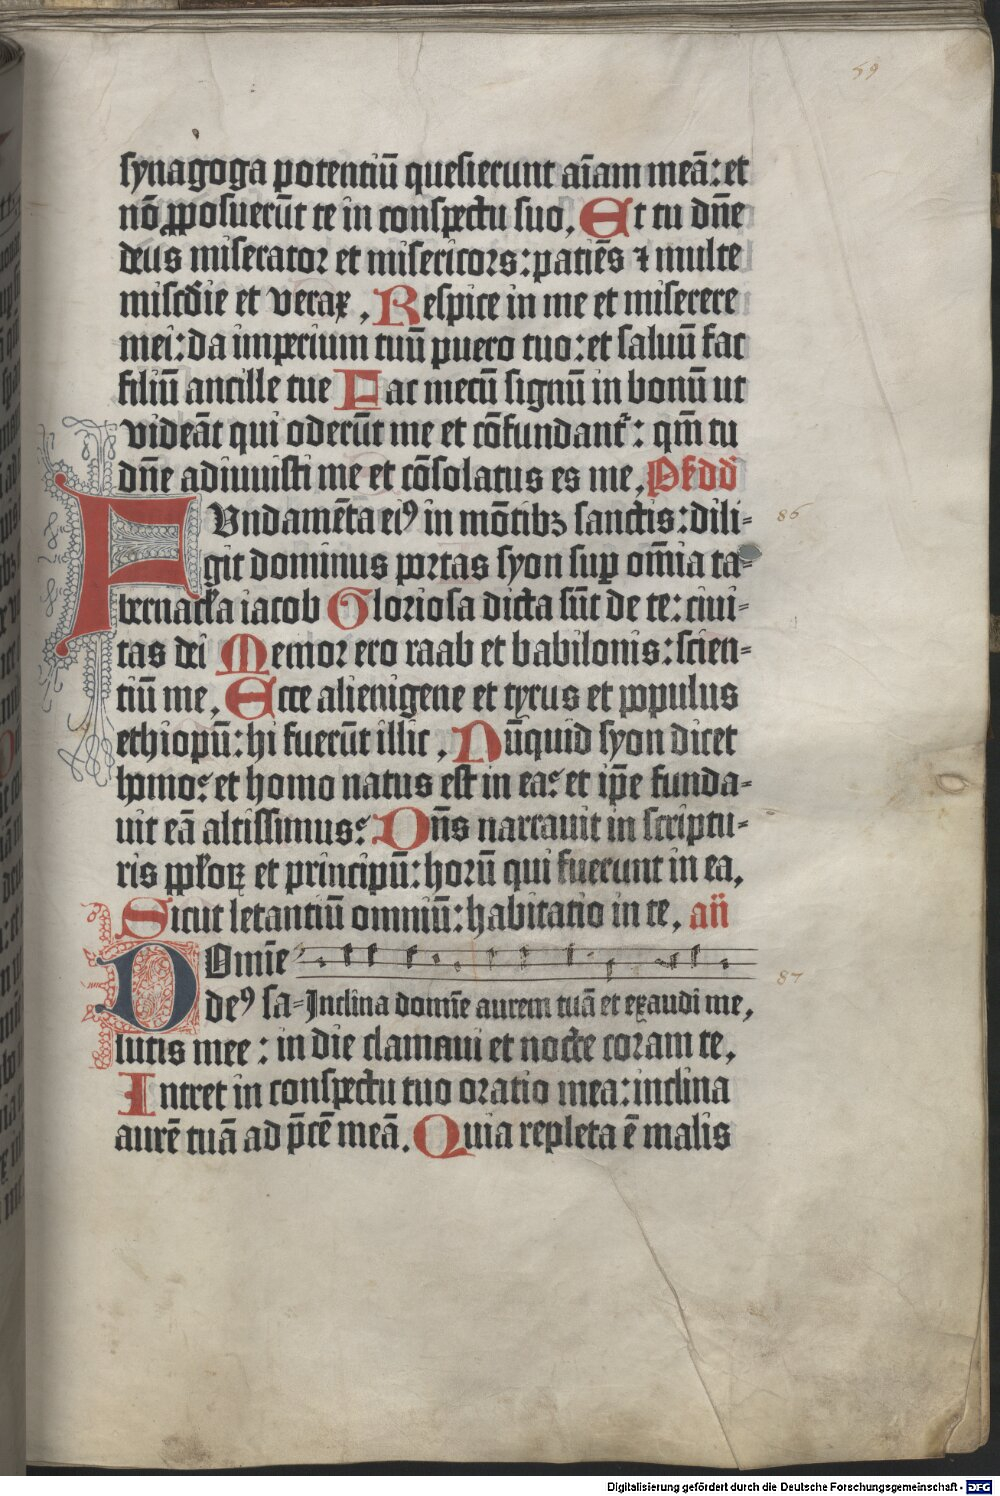 59
synagoga potentiū quesierunt aīam meā: et
nō ꝓposuerūt te in conspectu suo. Et tu dn̄e
deus miserator et misericors: patiēs ⁊ multe
misc̄die et verax. Respice in me et miserere
mei: da imperium tuū puero tuo: et saluū fac
filiū ancille tue Fac mecū signū in bonū ut
videāt qui oderūt me et cōfundant᷑: qm̄ tu
dn̄e adiuuisti me et cōsolatus es me.
FVndamēta eiꝰ in mōtibꝫ sanctis: dili-
86
git dominus portas syon sup om̄ia ta-
bernacła iacob Gloriosa dicta sūt de te: ciui-
tas dei Memor ero raab et babilonis: scien-
tiū me. Ecce alienigene et tyrus et populus
ethiopū: hi fuerūt illic. Nūquid syon dicet
homo: et homo natus est in ea: et ip̄e funda-
uit eā altissimus: Dn̄s narrauit in scriptu-
ris ppłoꝝ et principū: horū qui fuerunt in ea.
Sicut letantiū omniū: habitatio in te. an̄
DOmīe
87
deꝰ sa- Inclina domīe aurem tuā et exaudi me,
lutis mee: in die clamaui et nocte coram te.
Intret in conspectu tuo oratio mea: inclina
aurē tuā ad p̄cē meā. Quia repleta ē malis
Digitalisierung gefördert durch die Deutsche Forschungsgemeinschaft - DFG